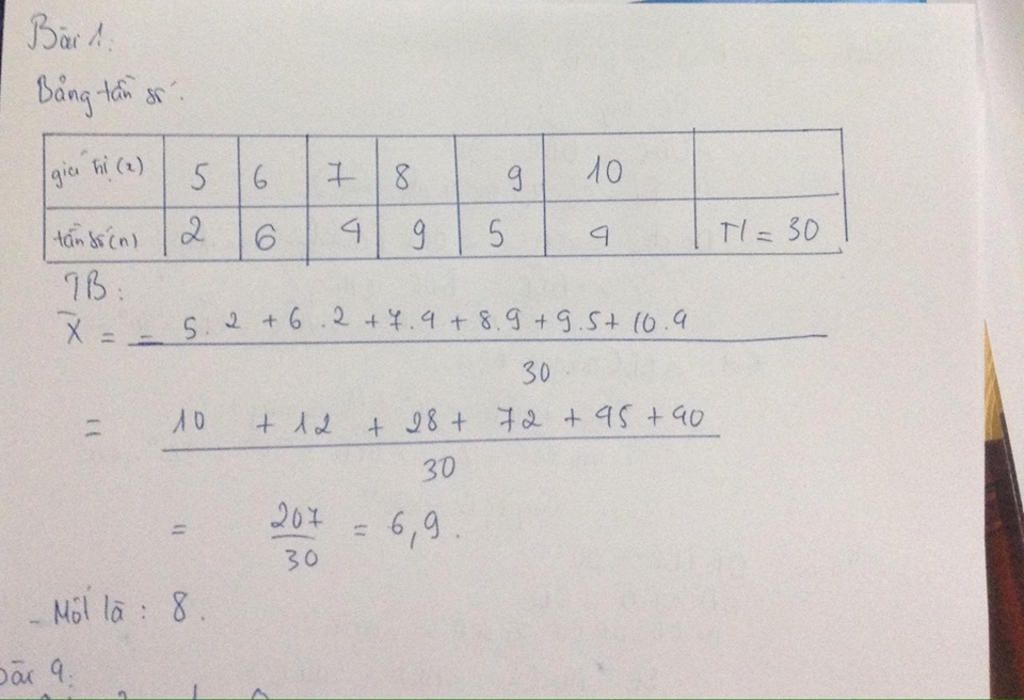 Bài 1:
Bảng tần số:
giá trị (x) 5 6 7 8 9 10
tần số (n) 2 6 4 9 5 4 TI = 30
TB:
X̄ = = 5.2 + 6.2 + 7.4 + 8.9 + 9.5 + 10.4
30
= 10 + 12 + 28 + 72 + 45 + 40
30
= 207/30 = 6,9.
- Mốt là : 8.
bài 4: